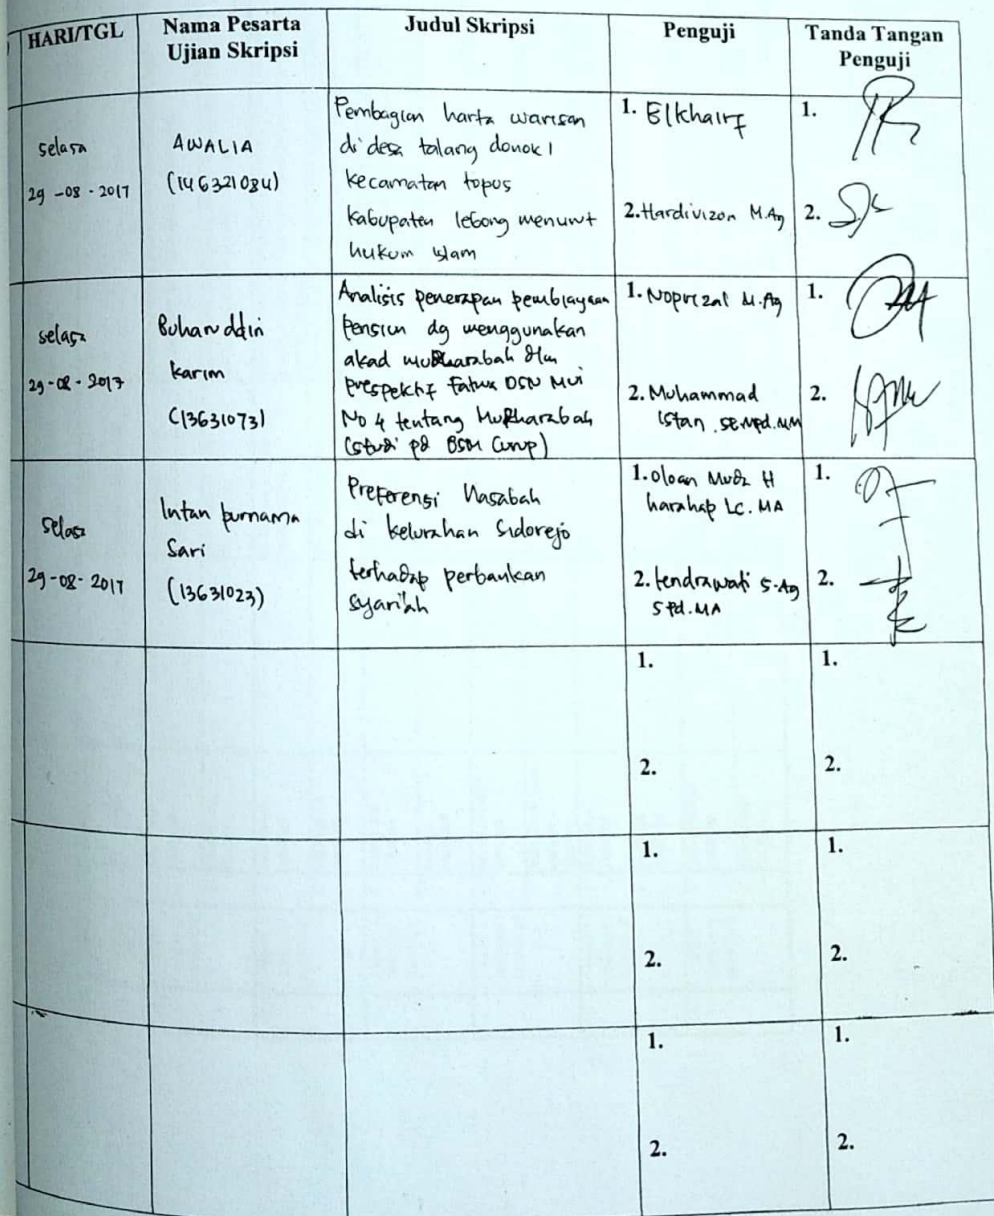 HARI/TGL
Nama Pesarta
Ujian Skripsi
Judul Skripsi
Penguji
Tanda Tangan
Penguji
selasa
29-08-2017
AWALIA
(146321084)
Pembagian harta warisan
di desa talang donok 1
kecamatan topos
kabupaten lebong menurut
hukum islam
1. Elkhairi
2. Hardivizon M.Ag
1.
2.
selasa
29-08-2017
Buharuddin
karim
(13631073)
Analisis penerapan pembiayaan
Pensiun dg menggunakan
akad mudharabah dlm
prespektif Fatwa DSN MUI
No 4 tentang Mudharabah
(studi pd BSM Curup)
1. Noprizal M.Ag
2. Muhammad
istan.SE.Mpd.MM
1.
2.
selasa
29-08-2017
Intan purnama
Sari
(13631023)
Preferensi Nasabah
di kelurahan Sidorejo
terhadap perbankan
syariah
1. oloan Muda H
harahap Lc. MA
2. kendrawati S.Ag
S.Pd.MA
1.
2.
1.
2.
1.
2.
1.
2.
1.
2.
1.
2.
1.
2.